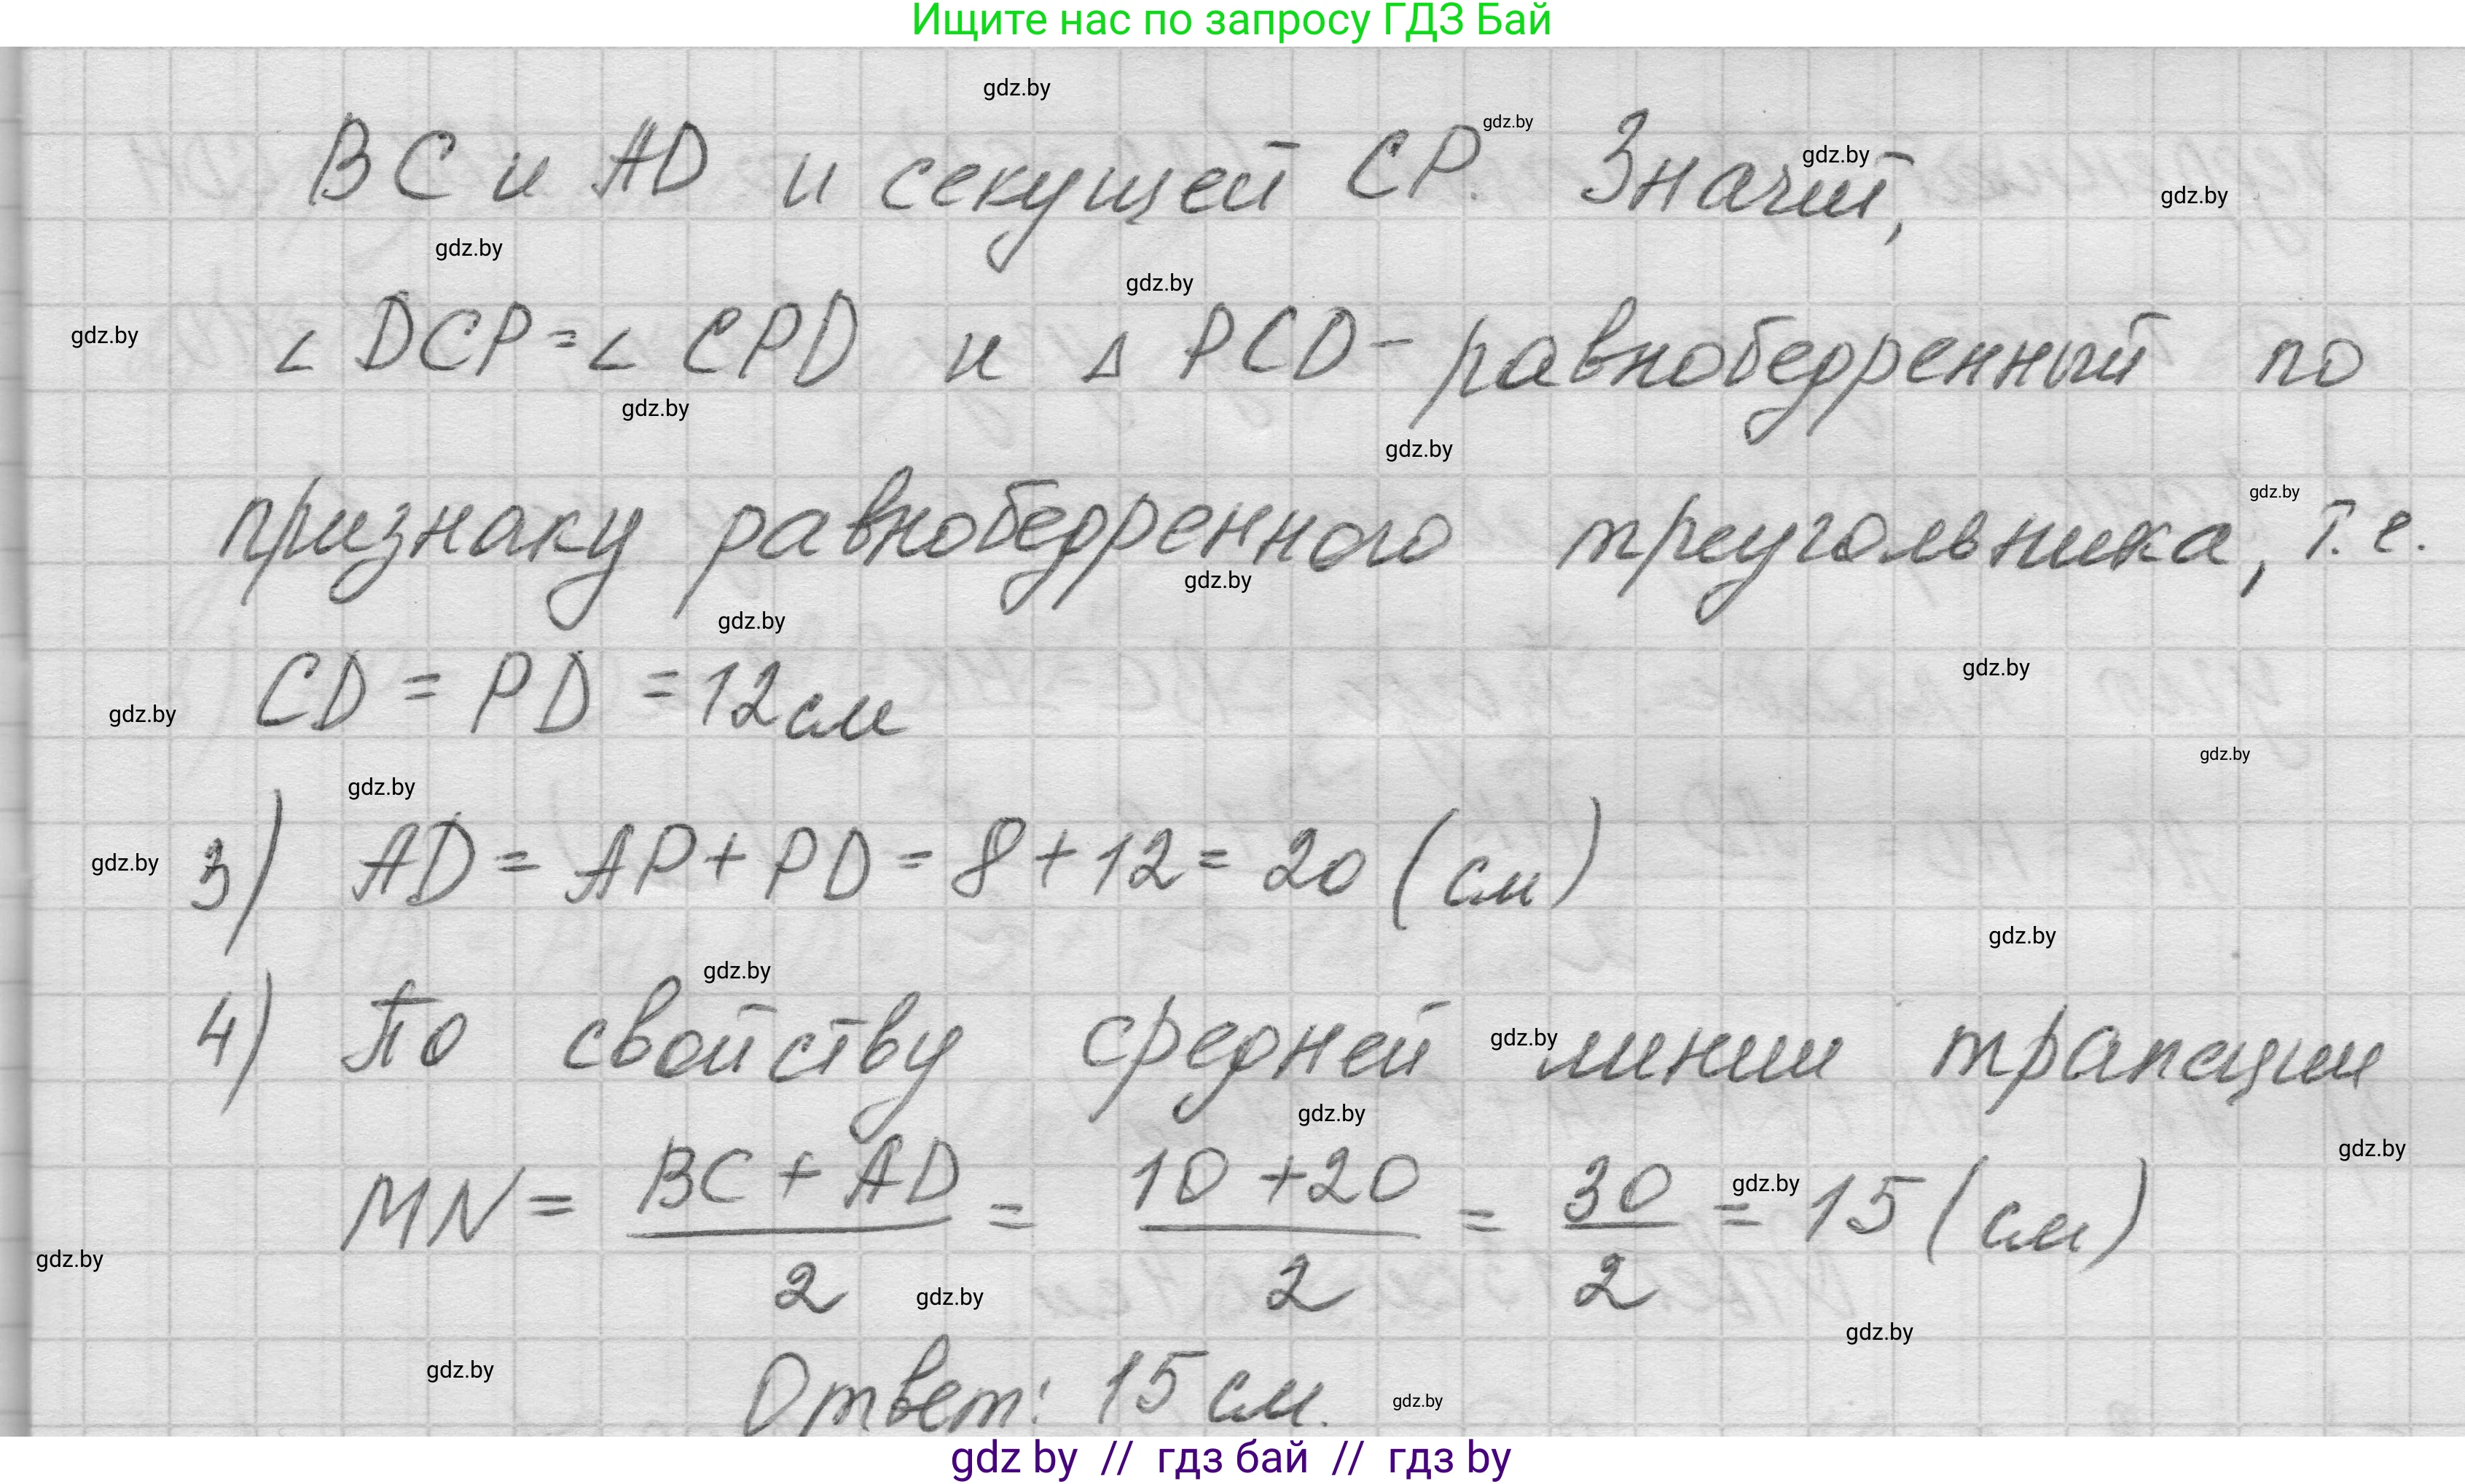 Ищите нас по запросу ГДЗ Бай
gdz.by
BC и AD и секущей CP. gdz.by Значит, gdz.by
gdz.by
gdz.by
gdz.by
gdz.by ∠ DCP = ∠ CPD и △ PCD - равнобедренный по
gdz.by
gdz.by
признаку равнобедренного треугольника, gdz.by т.е.
gdz.by
gdz.by
gdz.by CD = PD = 12 см gdz.by
gdz.by
gdz.by
gdz.by 3) AD = AP + PD = 8 + 12 = 20 (см)
gdz.by
gdz.by
4) По свойству средней gdz.by линии трапеции
gdz.by
gdz.by
MN = BC + AD / 2 = 10 + 20 / 2 = 30 / 2 gdz.by = 15 (см)
gdz.by
gdz.by
gdz.by
gdz.by Ответ: 15 см. gdz.by
gdz by // гдз бай // гдз by